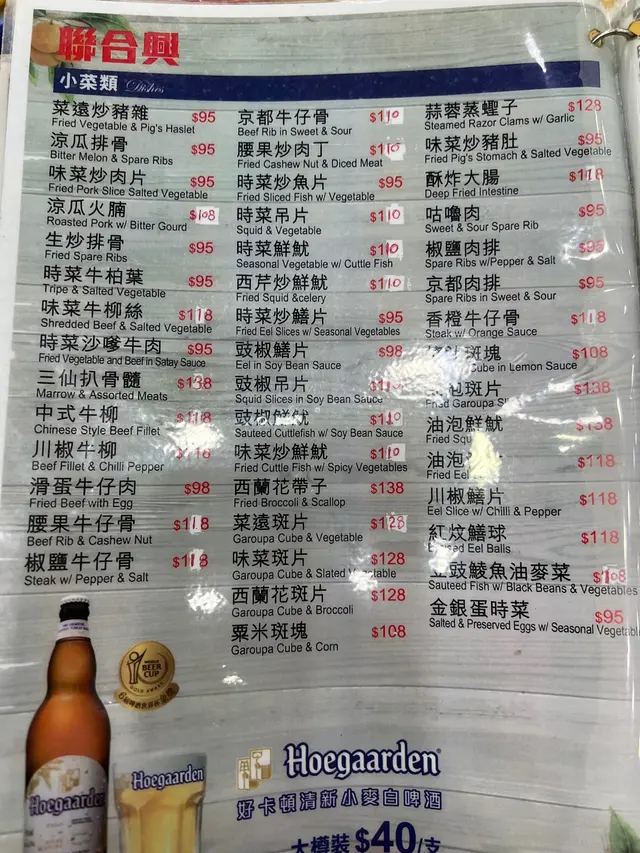 聯合興
小菜類 Dishes
菜遠炒豬雜 $95
Fried Vegetable & Pig's Haslet
涼瓜排骨 $95
Bitter Melon & Spare Ribs
味菜炒肉片 $95
Fried Pork Slice Salted Vegetable
涼瓜火腩 $108
Roasted Pork w/ Bitter Gourd
生炒排骨 $95
Fried Spare Ribs
時菜牛柏葉 $95
Tripe & Salted Vegetable
味菜牛柳絲 $118
Shredded Beef & Salted Vegetable
時菜沙嗲牛肉 $95
Fried Vegetable and Beef in Satay Sauce
三仙扒骨髓 $138
Marrow & Assorted Meats
中式牛柳 $118
Chinese Style Beef Fillet
川椒牛柳
Beef Fillet & Chilli Pepper
滑蛋牛仔肉 $98
Fried Beef with Egg
腰果牛仔骨 $118
Beef Rib & Cashew Nut
椒鹽牛仔骨 $118
Steak w/ Pepper & Salt
京都牛仔骨 $110
Beef Rib in Sweet & Sour
腰果炒肉丁 $110
Fried Cashew Nut & Diced Meat
時菜炒魚片 $95
Fried Sliced Fish w/ Vegetable
時菜吊片 $110
Squid & Vegetable
時菜鮮魷 $110
Seasonal Vegetable w/ Cuttle Fish
西芹炒鮮魷 $110
Fried Squid &celery
時菜炒鱔片 $95
Fried Eel Slices w/ Seasonal Vegetables
豉椒鱔片 $98
Eel in Soy Bean Sauce
豉椒吊片
Squid Slices in Soy Bean Sauce
豉椒鮮魷 $110
Sauteed Cuttlefish w/ Soy Bean Sauce
味菜炒鮮魷 $110
Fried Cuttle Fish w/ Spicy Vegetables
西蘭花帶子 $138
Fried Broccoli & Scallop
菜遠斑片 $128
Garoupa Cube & Vegetable
味菜斑片 $128
Garoupa Cube & Slated Vegetable
西蘭花斑片 $128
Garoupa Cube & Broccoli
粟米斑塊 $108
Garoupa Cube & Corn
蒜蓉蒸蟶子 $128
Steamed Razor Clams w/ Garlic
味菜炒豬肚 $95
Fried Pig's Stomach & Salted Vegetable
酥炸大腸 $118
Deep Fried Intestine
咕嚕肉 $95
Sweet & Sour Spare Rib
椒鹽肉排 $95
Spare Ribs w/Pepper & Salt
京都肉排 $95
Spare Ribs in Sweet & Sour
香橙牛仔骨 $118
Steak w/ Orange Sauce
斑塊 $108
Cube in Lemon Sauce
泡斑片 $138
Fried Garoupa
油泡鮮魷 $138
Fried
油泡 $118
Fried Eel
川椒鱔片 $118
Eel Slice w/ Chilli & Pepper
紅炆鱔球 $118
Eel Balls
豆豉鯪魚油麥菜 $108
Sauteed Fish w/ Black Beans & Vegetables
金銀蛋時菜 $95
Salted & Preserved Eggs w/ Seasonal Vegetable
WORLD BEER CUP
GOLD AWARD
Hoegaarden
Hoegaarden
Hoegaarden
好卡頓清新小麥白啤酒
大樽裝 $40/支